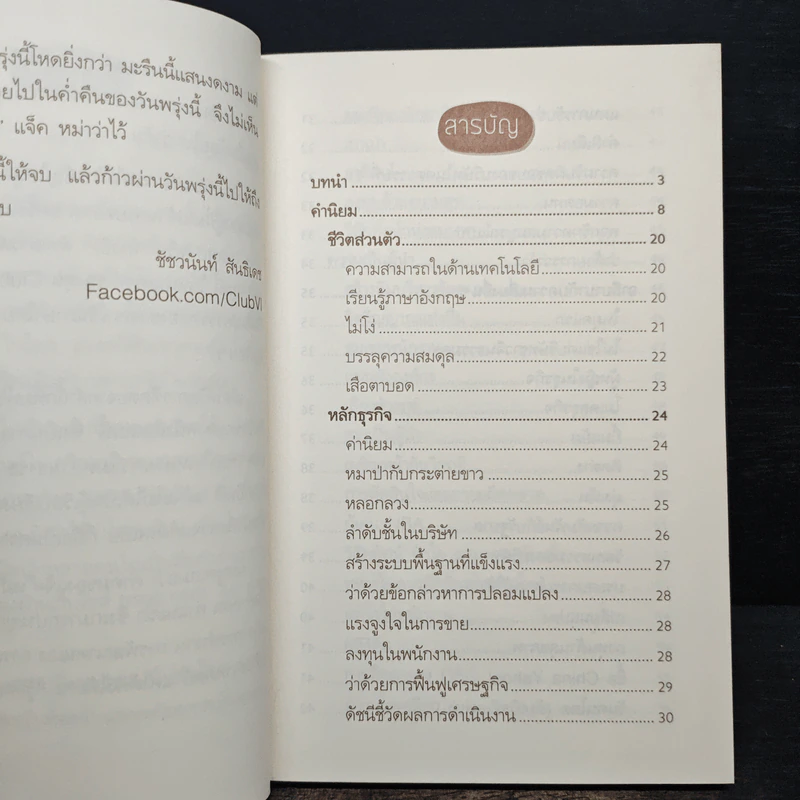 รุ่งนี้โหดยิ่งกว่า มะรืนนี้แสนงดงาม แต่
ยไปในค่ำคืนของวันพรุ่งนี้ จึงไม่เห็น
” แจ็ค หม่าว่าไว้
นี้ให้จบ แล้วก้าวผ่านวันพรุ่งนี้ไปให้ถึง
บ
ชัชวนันท์ สันธิเดช
Facebook.com/ClubVI
สารบัญ
บทนำ 3
คำนิยม 8
ชีวิตส่วนตัว 20
ความสามารถในด้านเทคโนโลยี 20
เรียนรู้ภาษาอังกฤษ 20
ไม่โง่ 21
บรรลุความสมดุล 22
เสือตาบอด 23
หลักธุรกิจ 24
ค่านิยม 24
หมาป่ากับกระต่ายขาว 25
หลอกลวง 25
ลำดับชั้นในบริษัท 26
สร้างระบบพื้นฐานที่แข็งแรง 27
ว่าด้วยข้อกล่าวหาการปลอมแปลง 28
แรงจูงใจในการขาย 28
ลงทุนในพนักงาน 28
ว่าด้วยการฟื้นฟูเศรษฐกิจ 29
ดัชนีชี้วัดผลการดำเนินงาน 30